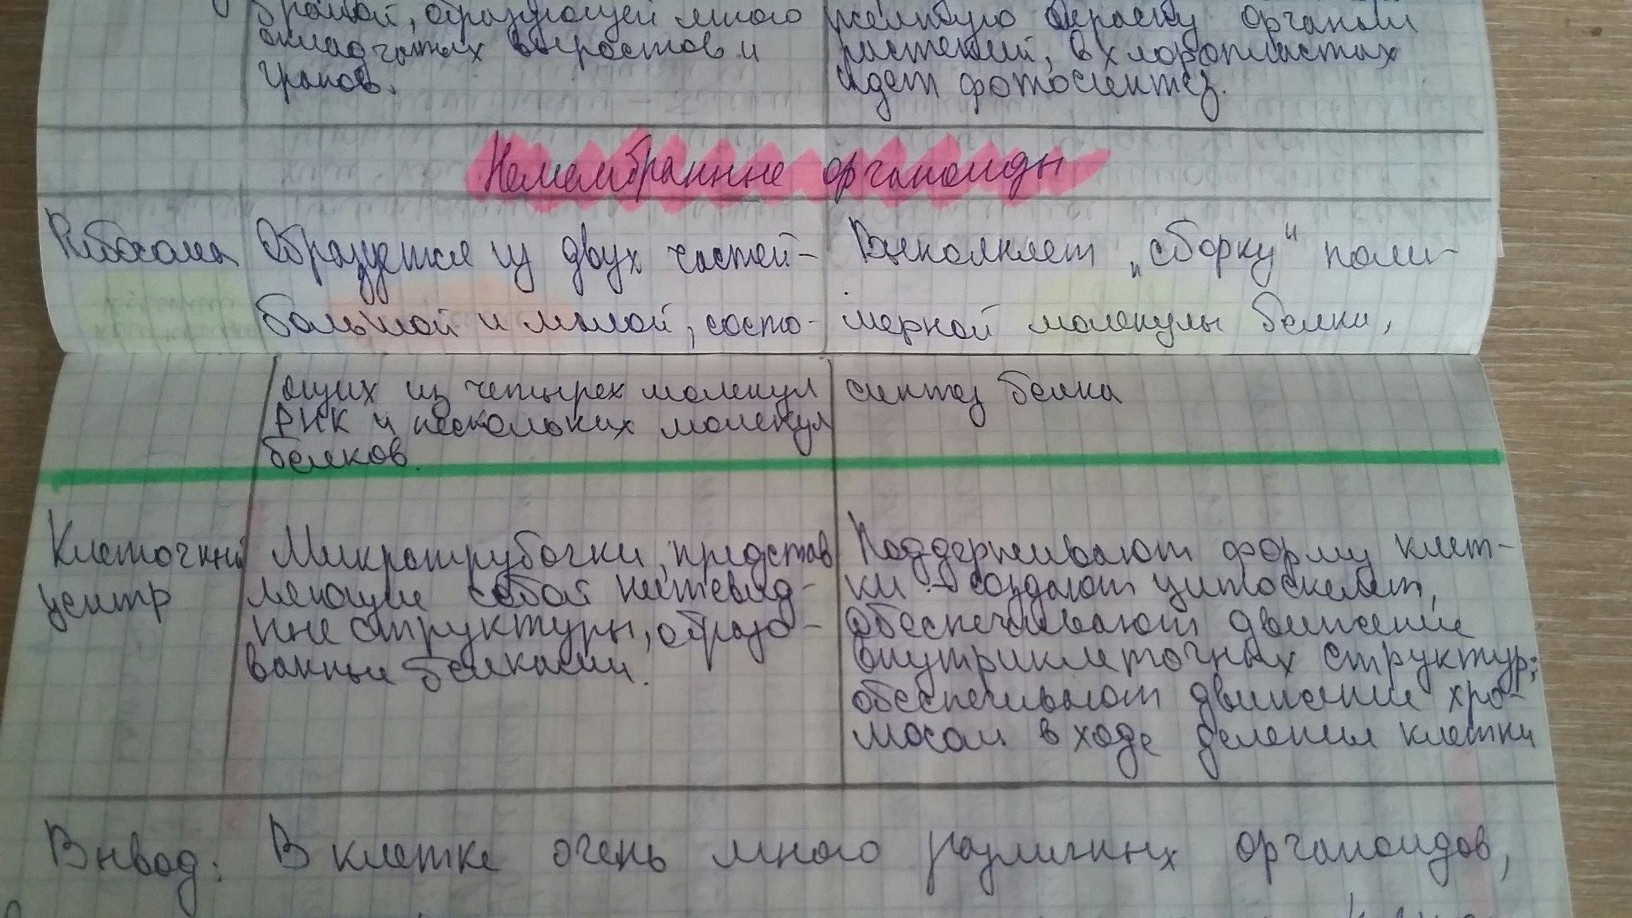 браной, образующей много
складчатых выростов и
гранов.
желтую окраску органам
растений, в хлоропластах
идет фотосинтез.
Немембранные органоиды
Рибосома
Образуется из двух частей-
большой и малой, состо-
ящих из четырех молекул
РНК и нескольких молекул
белков.
Выполняет „сборку" поли-
мерной молекулы белка,
синтез белка
Клеточный
центр
Микротрубочки, представ
ляющие собой нитевид-
ные структуры, образо-
ванные белками.
Поддерживают форму клет-
ки - создают цитоскелет,
обеспечивают движение
внутриклеточных структур;
обеспечивают движение хро-
мосом в ходе деления клетки
Вывод: В клетке очень много различных органоидов,